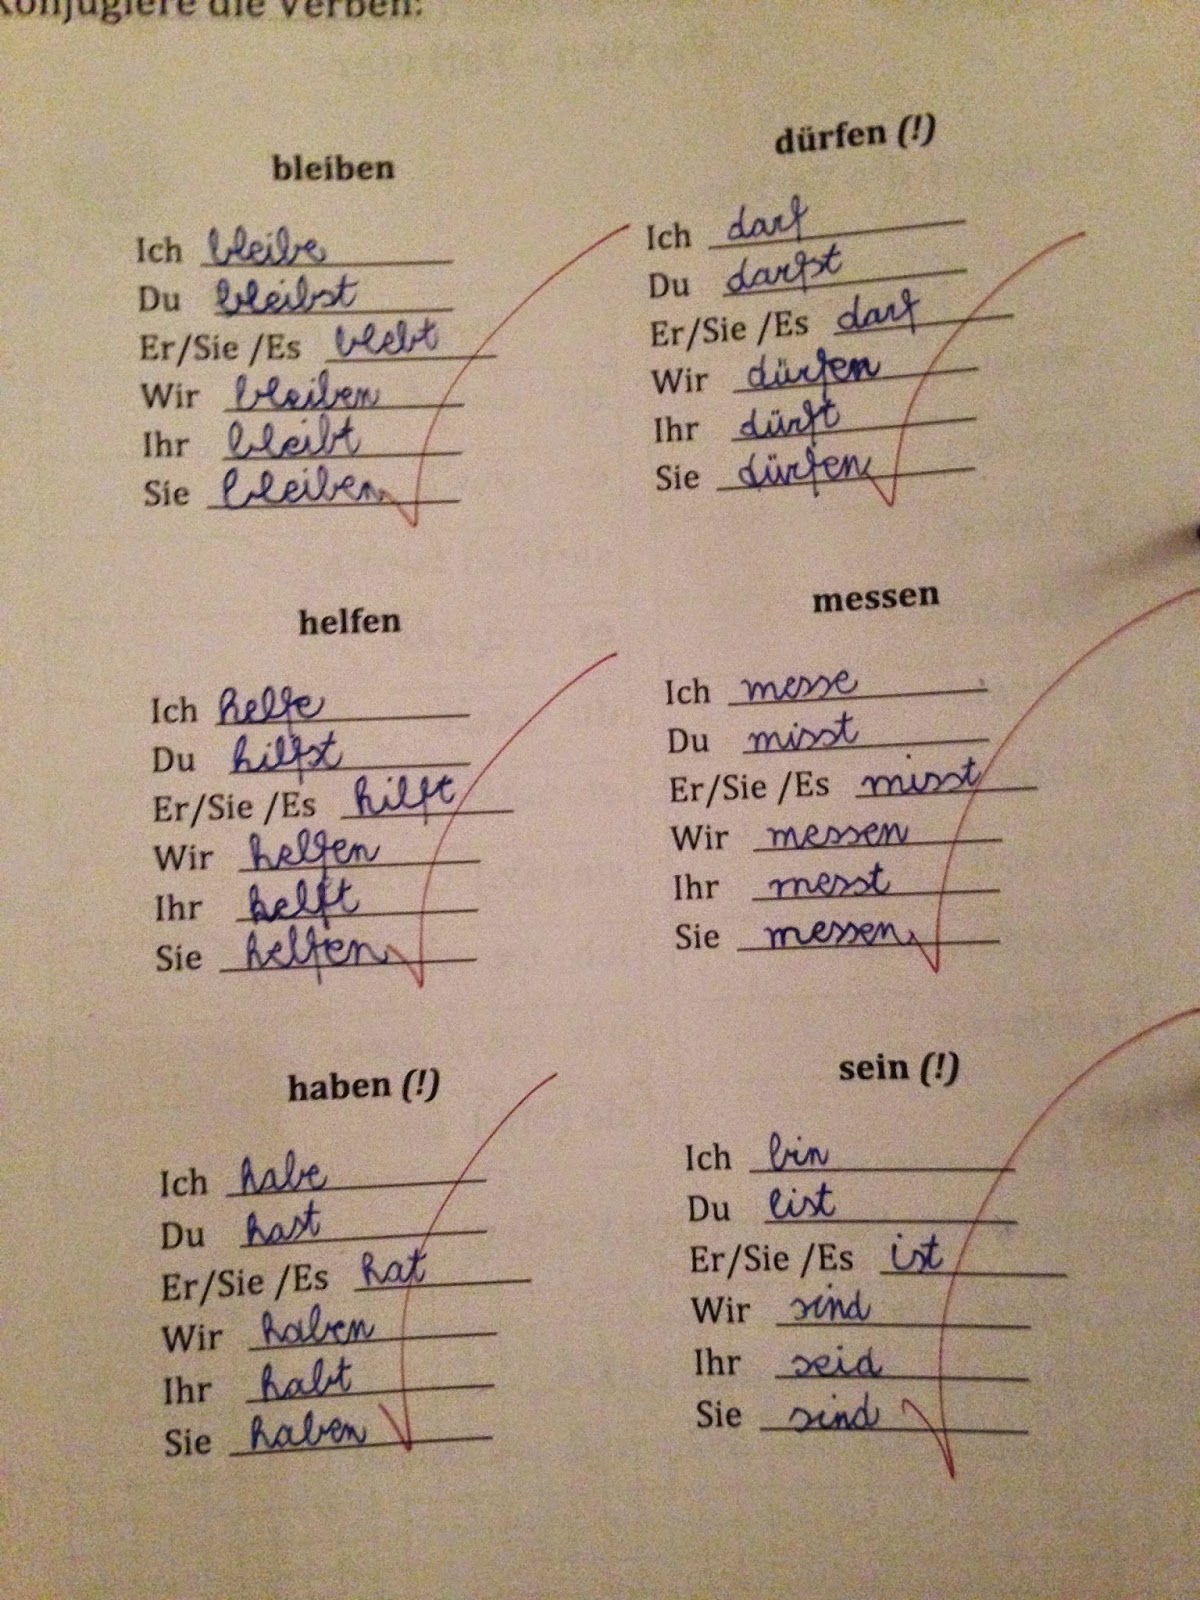 Konjugiere die Verben:
bleiben
Ich bleibe
Du bleibst
Er/Sie /Es blebt
Wir bleiben
Ihr bleibt
Sie bleiben
dürfen (!)
Ich darf
Du darfst
Er/Sie /Es darf
Wir dürfen
Ihr dürft
Sie dürfen
helfen
Ich helfe
Du hilfst
Er/Sie /Es hilft
Wir helfen
Ihr helft
Sie helfen
messen
Ich messe
Du misst
Er/Sie /Es misst
Wir messen
Ihr messt
Sie messen
haben (!)
Ich habe
Du hast
Er/Sie /Es hat
Wir haben
Ihr habt
Sie haben
sein (!)
Ich bin
Du bist
Er/Sie /Es ist
Wir sind
Ihr seid
Sie sind